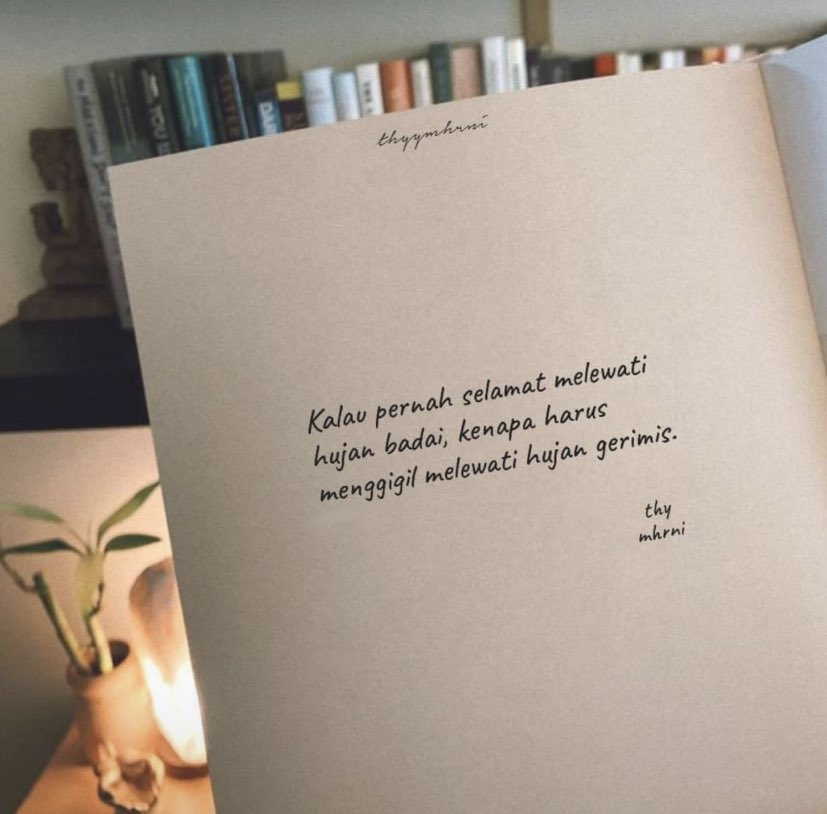 thyymhrni
Kalau pernah selamat melewati
hujan badai, kenapa harus
menggigil melewati hujan gerimis.
thy
mhrni